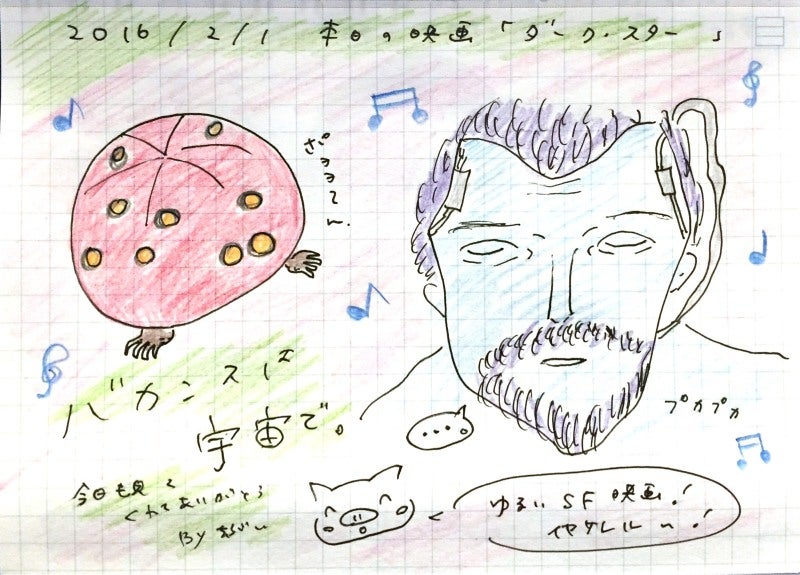 2016/2/1 本日の映画「ダーク・スター」
バカンスは
宇宙で。
プカプカ
....
今日も見て
くれてありがとう
By
ゆるいSF映画!
イヤサレルへ!